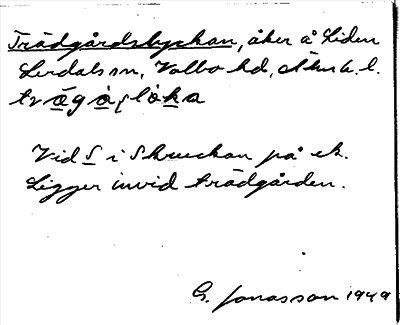 Trädgårdslyckan, åker å Liden
Lerdals sn, Valbo hd, Älvsb. l.
trägås̩lèka
Vid S i Skruckan på ek.
Ligger invid trädgården.
G. Jonasson 1949